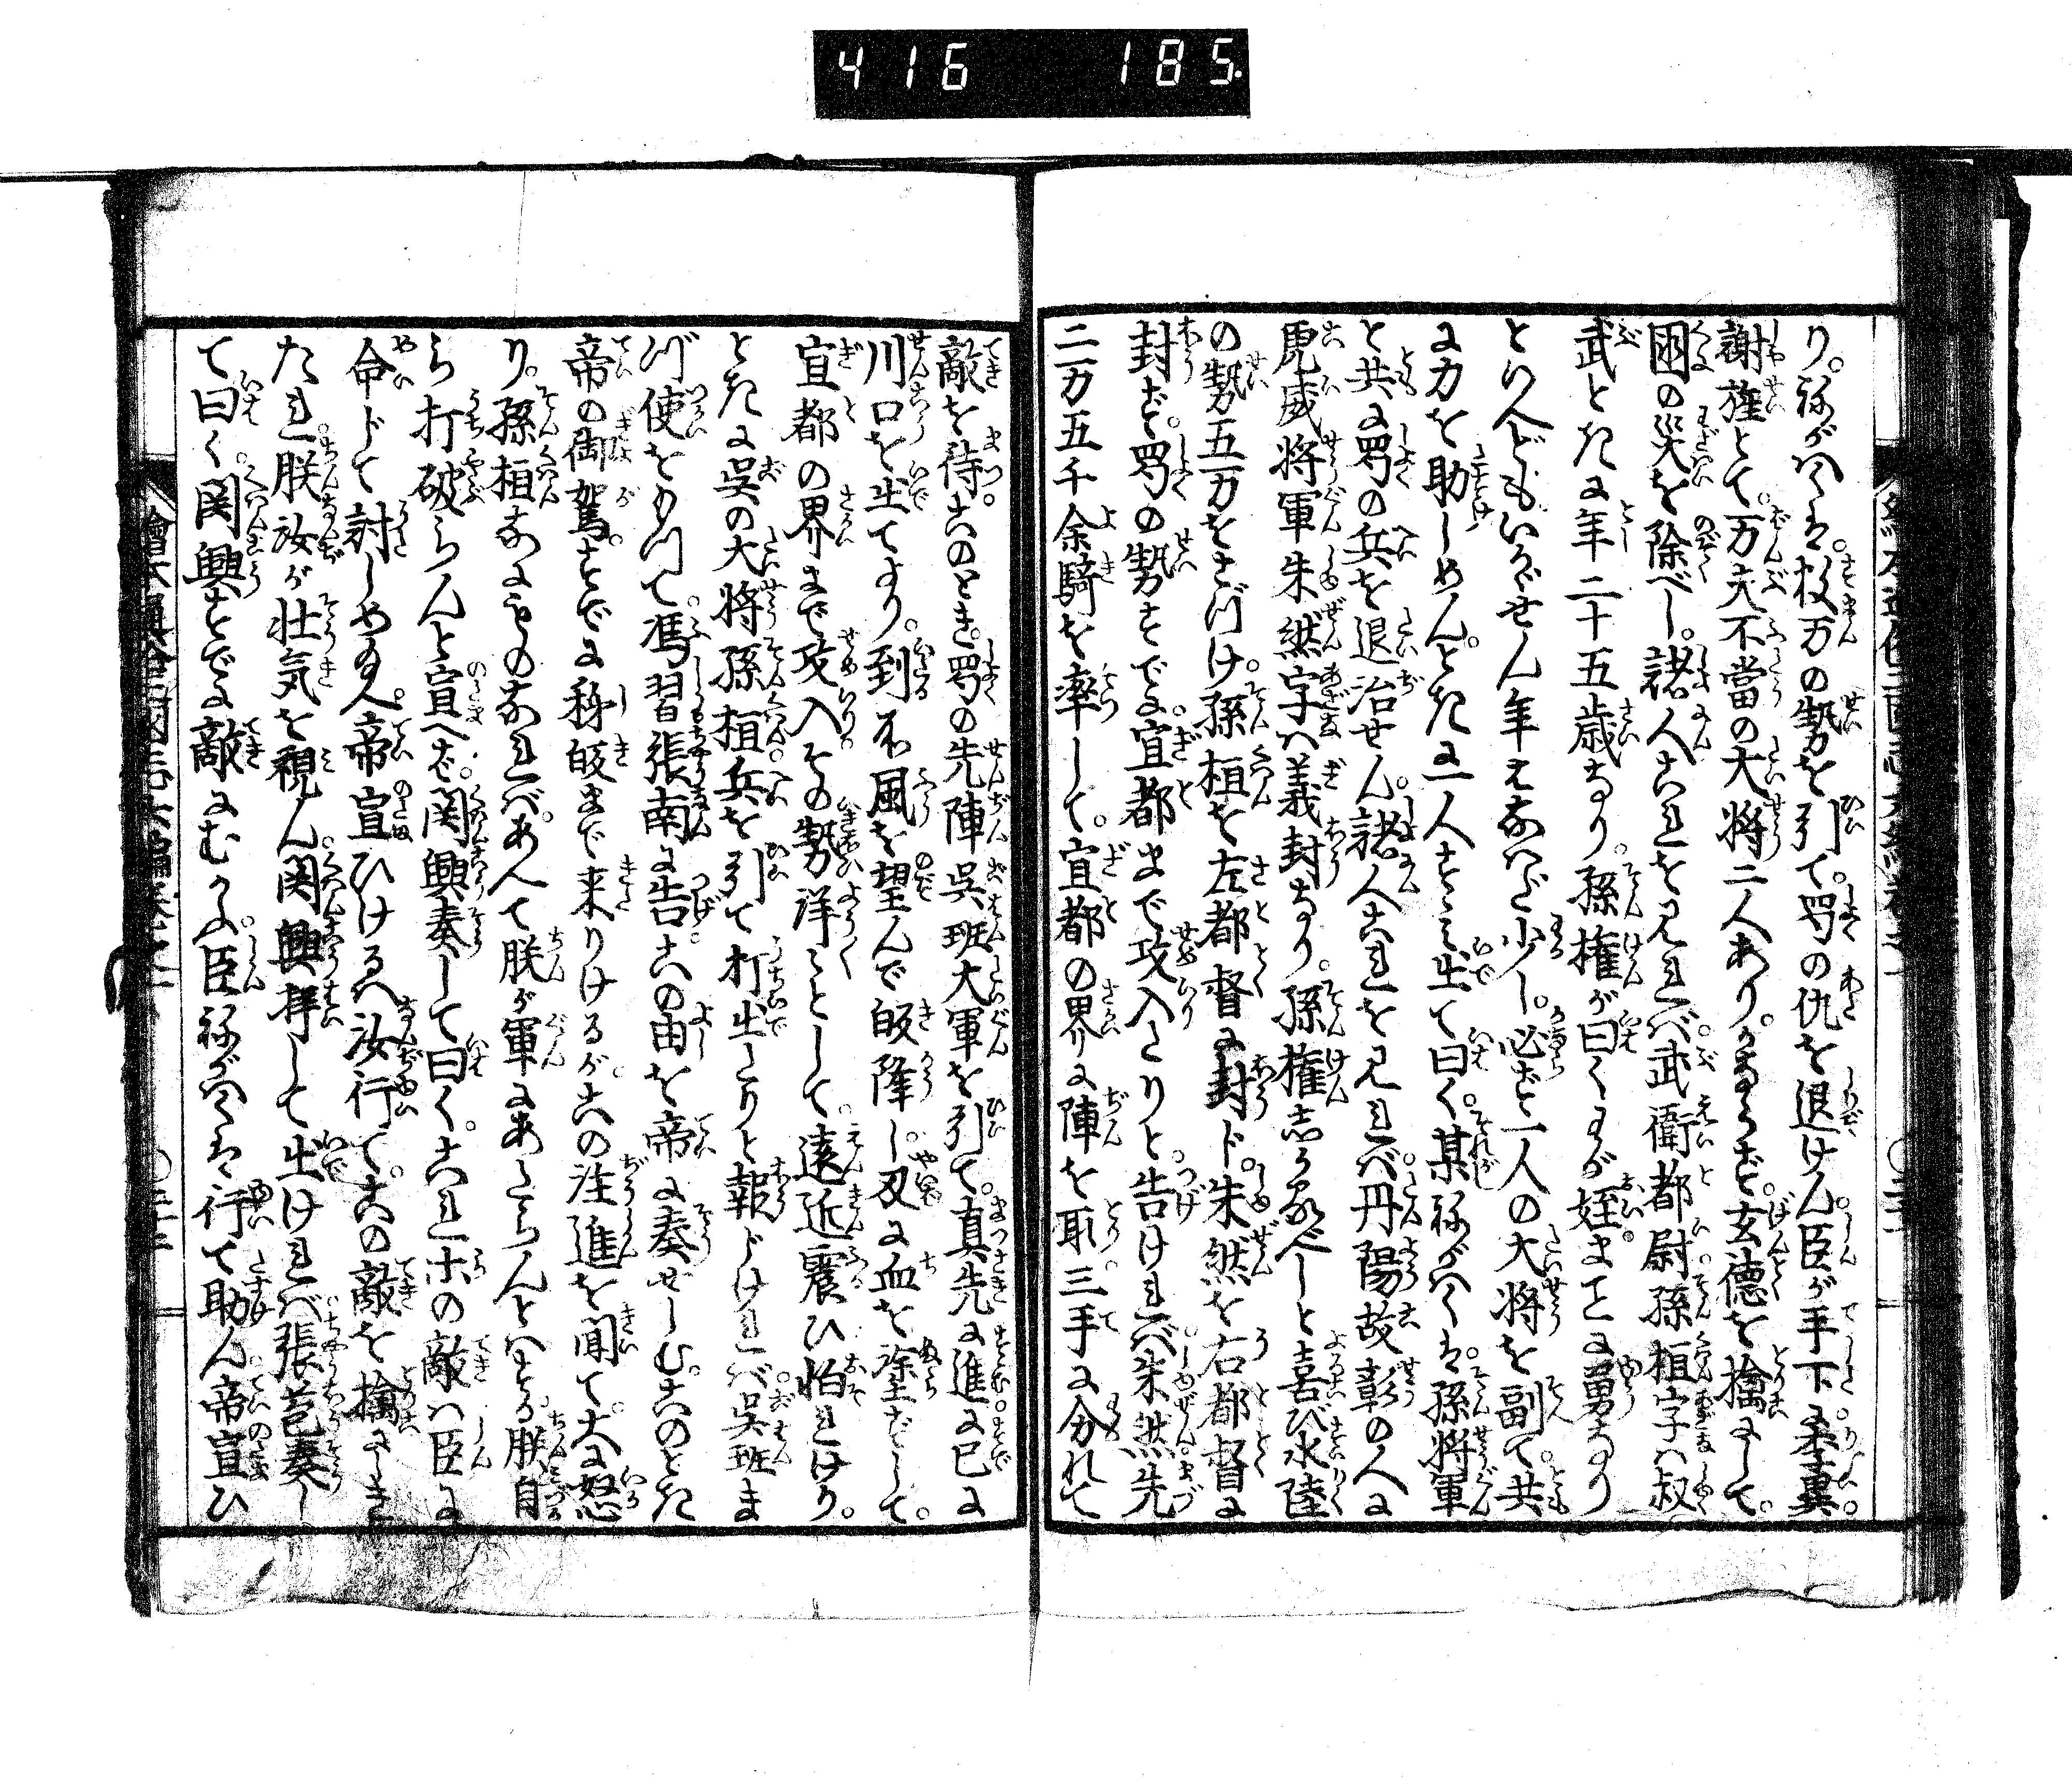 416 185.
り。稱がハくハ。数万の勢を引て。蜀の仇を退けん。臣が手下に李異。
謝旌とて。万夫不當の大将二人あり。かならず。玄徳を擒にして。
国の災を除べし。諸人これを見れバ。武衛都尉。孫桓字ハ叔
武とたに年二十五歳なり。孫権が曰くわが姪。まことに勇なり
とハ人どもいかがせん年はなハだ少し。必ず一人の大将を副て。共
に力を助しめん。ときに一人すゝみ出て曰く。某稱がハくハ。孫将軍
と共に蜀の兵を退治せん。諸人これを見れバ。丹陽故彰の人に
虎威将軍朱然字ハ義封なり。孫権志かるべしと喜び水陸
の勢五万をさづけ。孫桓を左都督に封ド。朱然を右都督に
封ず。蜀の勢すでに。宜都まで攻入たりと。告けれバ。朱然。先
二万五千余騎を率して。宜都の界に陣を取。三手に分れて
敵を待。このとき。蜀の先陣呉班大軍を引て。真先に進。已に
川口を出てより。到る所風を望んで皈降し。刃に血を塗ずして。
宜都の界まで攻入り。その勢洋々として。遠近震ひ怕れけり。
ときに呉の大将孫桓。兵を引て打出たりと報じけれバ。呉班ま
づ使をもつて。馮習。張南に告。この由を帝に奏せしむ。このとき
帝の御駕。すでに秭皈まで来りけるが。この注進を聞て。大に怒
り。孫桓なにものなれバ。あへて朕が軍にあたらんとハする。朕自
ら打破らんと宣へば。関興奏して曰く。これホの敵ハ臣に
命じて討しめ給へ。帝宣ひけるハ汝行て。この敵を擒にきき
たれ。朕汝が壮気を視ん。関興拝して出けれバ。張苞奏し
て曰く。関興すでに敵にむかふ。臣稱がハくハ行て助ん。帝宣ひ